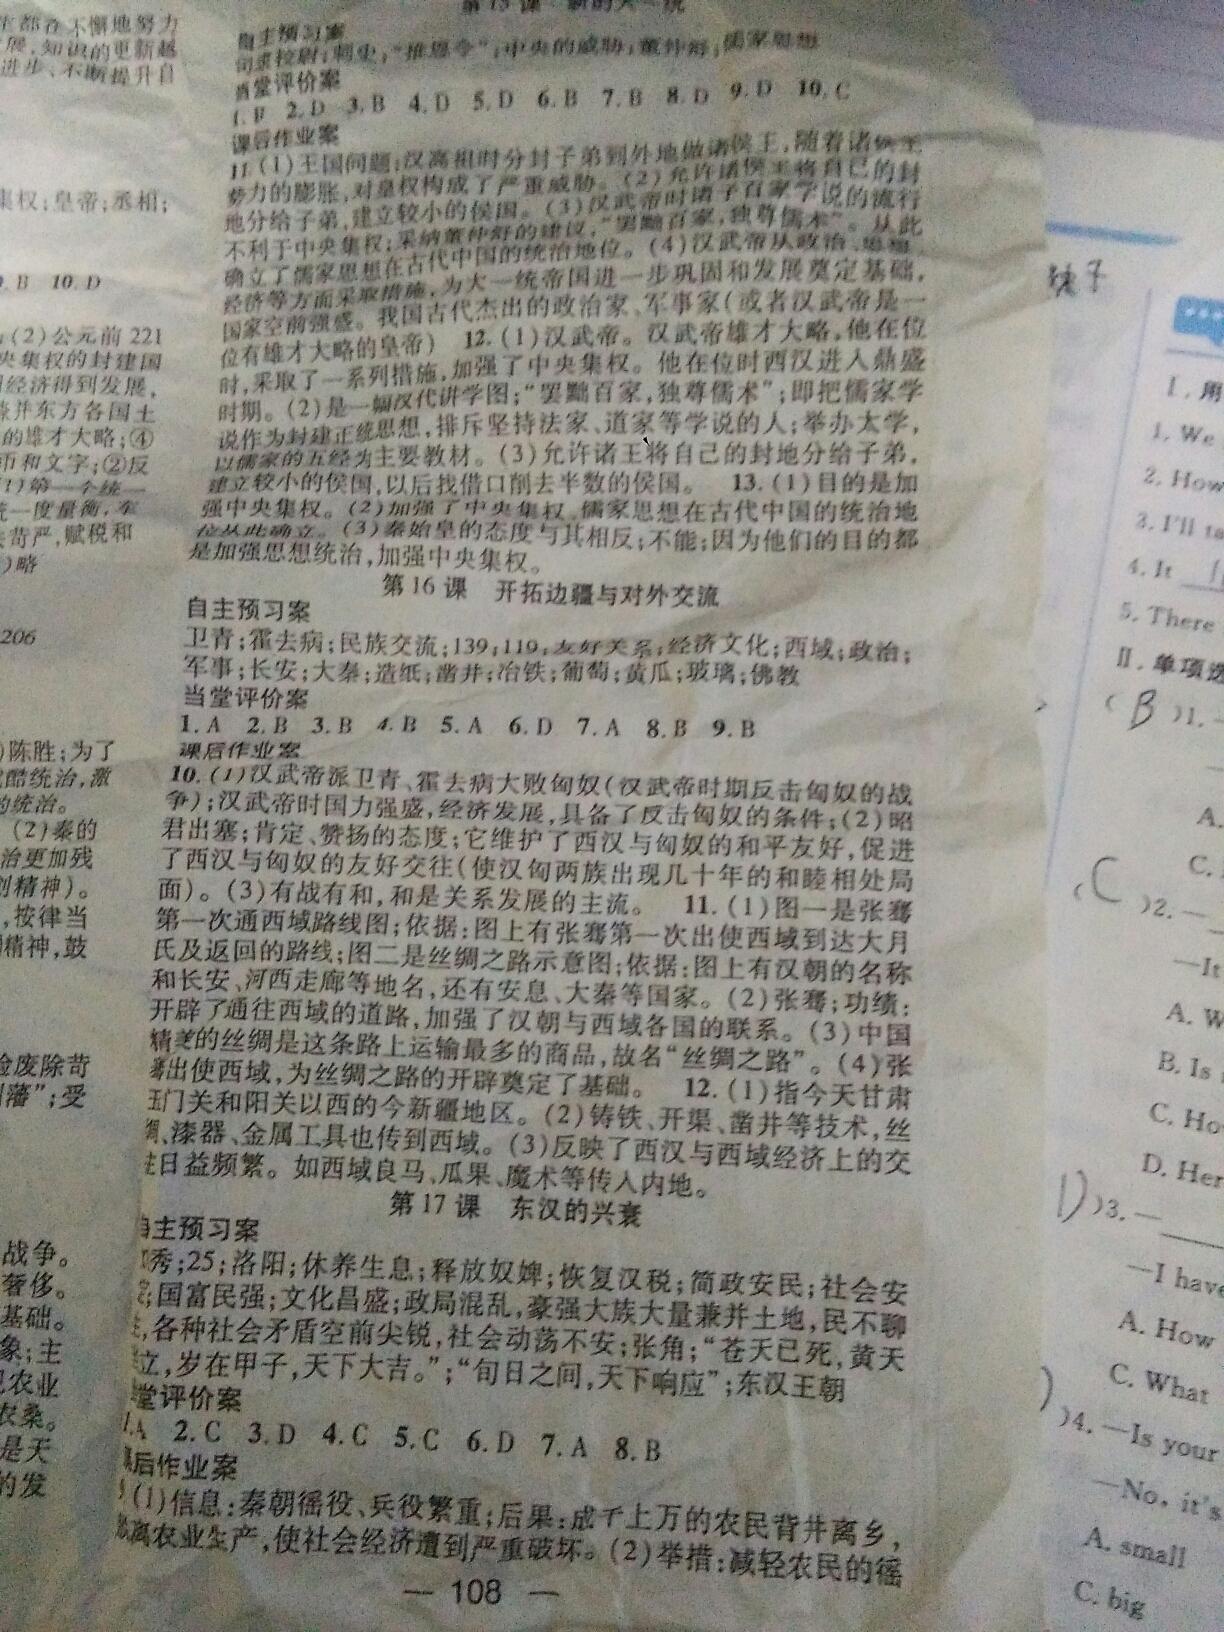 年都在不懈地努力
展,知识的更新越
进步、不断提升自
集权;皇帝;丞相;
B 10. D
(2)公元前 221
央集权的封建国
经济得到发展,
并东方各国土
的雄才大略;④
币和文字;②反
一度量衡,车
苛严,赋税和
)略
206
)陈胜;为了
酷统治,激
的统治。
(2)秦的
治更加残
创精神)。
,按律当
精神,鼓
废除苛
藩”;受
战争。
奢侈。
基础。
象;主
农业
农桑。
是天
的发
自主预习案
司隶校尉;刺史;“推恩令”;中央的威胁;董仲舒;儒家思想
当堂评价案
1. B 2. D 3. B 4. D 5. D 6. B 7. B 8. D 9. D 10. C
课后作业案
11. (1)王国问题;汉高祖时分封子弟到外地做诸侯王,随着诸侯王
势力的膨胀,对皇权构成了严重威胁。(2)允许诸侯王将自己的封
地分给子弟,建立较小的侯国。(3)汉武帝时诸子百家学说的流行
不利于中央集权;采纳董仲舒的建议,“罢黜百家,独尊儒术”。从此
确立了儒家思想在古代中国的统治地位。(4)汉武帝从政治、思想、
经济等方面采取措施,为大一统帝国进一步巩固和发展奠定基础,
国家空前强盛。我国古代杰出的政治家、军事家(或者汉武帝是一
位有雄才大略的皇帝) 12. (1)汉武帝。汉武帝雄才大略,他在位
时,采取了一系列措施,加强了中央集权。他在位时西汉进入鼎盛
时期。(2)是一幅汉代讲学图;“罢黜百家,独尊儒术”;即把儒家学
说作为封建正统思想,排斥坚持法家、道家等学说的人;举办太学,
以儒家的五经为主要教材。(3)允许诸王将自己的封地分给子弟,
建立较小的侯国,以后找借口削去半数的侯国。 13. (1)目的是加
强中央集权。(2)加强了中央集权,儒家思想在古代中国的统治地
位从此确立。(3)秦始皇的态度与其相反;不能;因为他们的目的都
是加强思想统治,加强中央集权。
第 16 课 开拓边疆与对外交流
自主预习案
卫青;霍去病;民族交流;139;119;友好关系;经济文化;西域;政治;
军事;长安;大秦;造纸;凿井;冶铁;葡萄;黄瓜;玻璃;佛教
当堂评价案
1. A 2. B 3. B 4. B 5. A 6. D 7. A 8. B 9. B
课后作业案
10. (1)汉武帝派卫青、霍去病大败匈奴(汉武帝时期反击匈奴的战
争);汉武帝时国力强盛,经济发展,具备了反击匈奴的条件;(2)昭
君出塞;肯定、赞扬的态度;它维护了西汉与匈奴的和平友好,促进
了西汉与匈奴的友好交往(使汉匈两族出现几十年的和睦相处局
面)。(3)有战有和,和是关系发展的主流。 11. (1)图一是张骞
第一次通西域路线图;依据:图上有张骞第一次出使西域到达大月
氏及返回的路线;图二是丝绸之路示意图;依据:图上有汉朝的名称
和长安、河西走廊等地名,还有安息、大秦等国家。(2)张骞;功绩:
开辟了通往西域的道路,加强了汉朝与西域各国的联系。(3)中国
精美的丝绸是这条路上运输最多的商品,故名“丝绸之路”。(4)张
骞出使西域,为丝绸之路的开辟奠定了基础。 12. (1)指今天甘肃
玉门关和阳关以西的今新疆地区。(2)铸铁、开渠、凿井等技术,丝
绸、漆器、金属工具也传到西域。(3)反映了西汉与西域经济上的交
往日益频繁。如西域良马、瓜果、魔术等传入内地。
第 17 课 东汉的兴衰
自主预习案
秀;25;洛阳;休养生息;释放奴婢;恢复汉税;简政安民;社会安
定;国富民强;文化昌盛;政局混乱,豪强大族大量兼并土地,民不聊
生,各种社会矛盾空前尖锐,社会动荡不安;张角;“苍天已死,黄天
当立,岁在甲子,天下大吉。”;“旬日之间,天下响应”;东汉王朝
当堂评价案
1. A 2. C 3. D 4. C 5. C 6. D 7. A 8. B
课后作业案
(1)信息:秦朝徭役、兵役繁重;后果:成千上万的农民背井离乡,
脱离农业生产,使社会经济遭到严重破坏。(2)举措:减轻农民的徭
— 108 —
Ⅰ. 用
1. We
2. How
3. I'll ta
4. It
5. There
Ⅱ. 单项选
( B )1. —
A.
C.
( C )2. —
—It
A. W
B. Is
C. Ho
D. Her
D )3. —
—I have
A. How
C. What
)4. —Is your
—No, it's
A. small
C. big